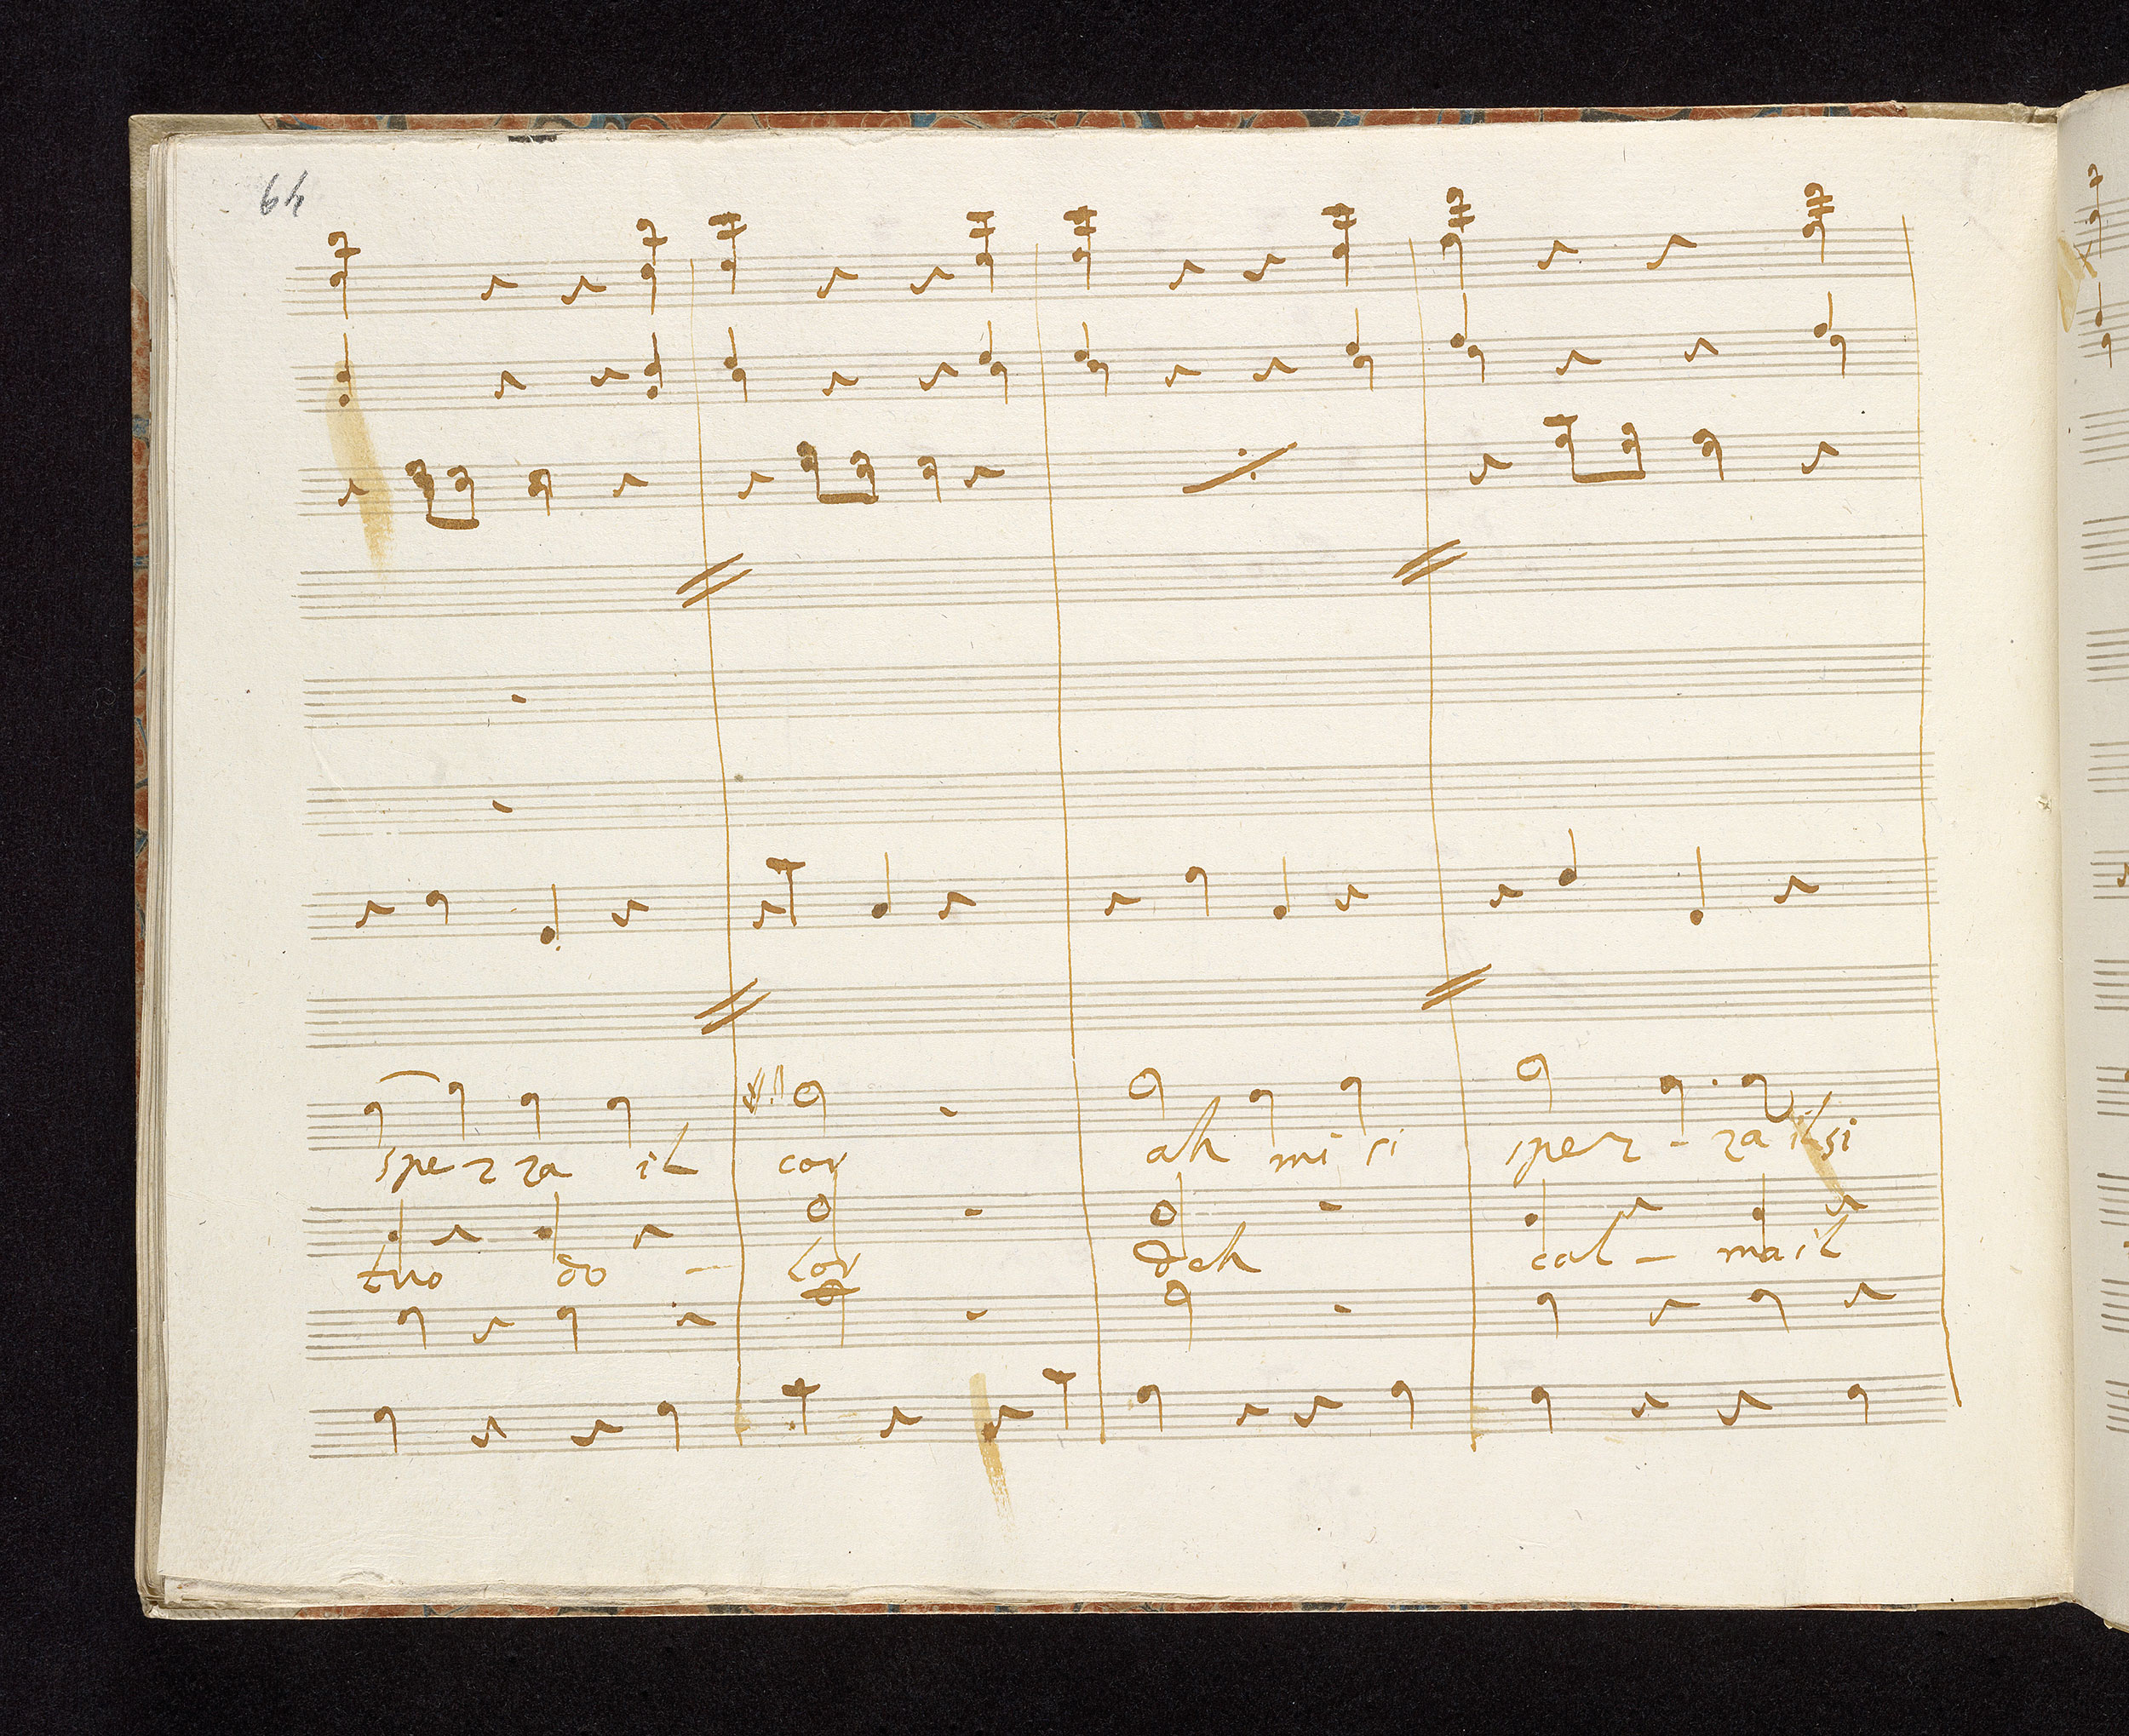 64
spezza il cor ah mi si spez - za il si
tuo do - lor deh cal - ma il